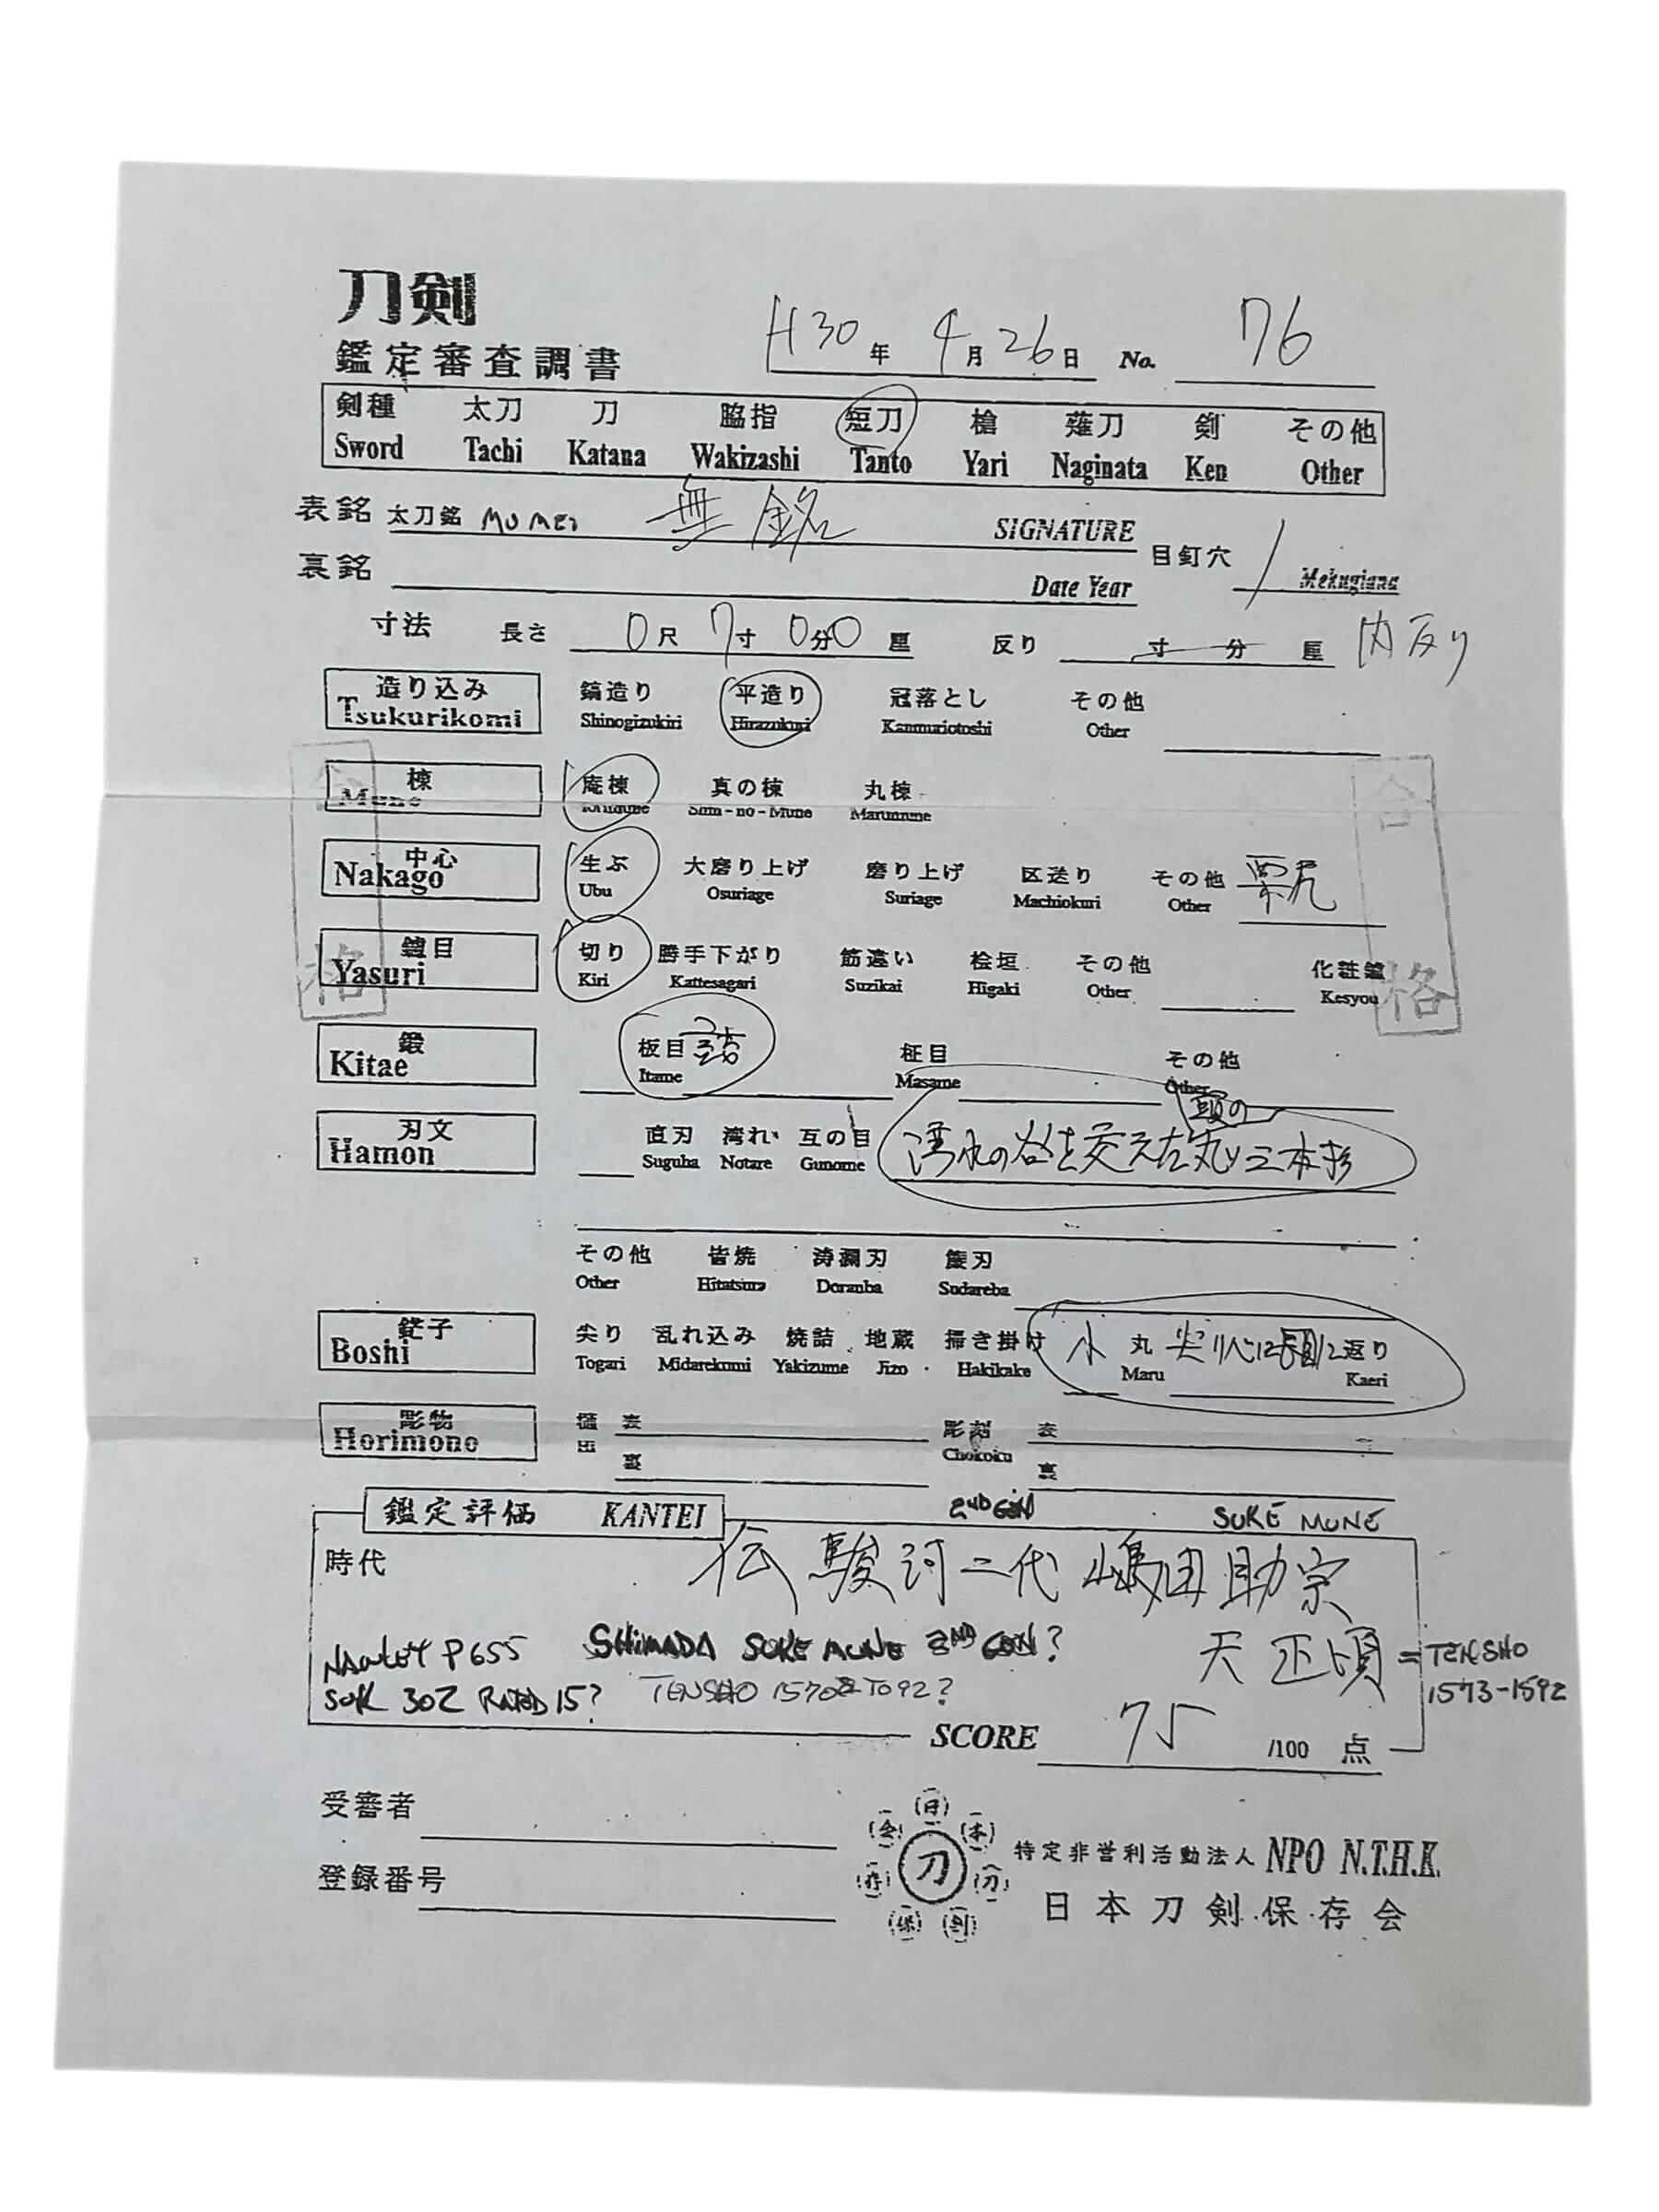 刀剣
鑑定審査調書
H30年 4月26日 No. 76
剣種 太刀 刀 脇指 短刀 槍 薙刀 剣 その他
Sword Tachi Katana Wakizashi Tanto Yari Naginata Ken Other
表銘 太刀銘 MUMEI 無銘 SIGNATURE
目釘穴 / Mekugiana
裏銘 Date Year
寸法 長さ 0尺 7寸 0分0厘 反り 寸 分 厘 内反り
造り込み 鎬造り 平造り 冠落とし その他
Tsukurikomi Shinogizukiri Hirazukuri Kanmuriotoshi Other
棟 庵棟 真の棟 丸棟
Mune Iorimune Shin-no-Mune Marumune
中心 生ぶ 大磨り上げ 磨り上げ 区送り その他 栗尻
Nakago Ubu Osuriage Suriage Machiokuri Other
鑢目 切り 勝手下がり 筋違い 桧垣 その他 化粧鑢
Yasuri Kiri Kattesagari Suzikai Higaki Other Kesyou
合格
合格
鍛 板目 柾目 その他
Kitae Itame Masame Other
刃文 直刃 湾れ 互の目 頭の
湾れの谷を交えた丸い三本杉
Hamon Suguha Notare Gunome
その他 皆焼 濤瀾刃 簾刃
Other Hitatsura Doranba Sudareba
鋩子 尖り 乱れ込み 焼詰 地蔵 掃き掛け 小丸尖り心に 返り
Boshi Togari Midarekomi Yakizume Jizo Hakikake Maru Kaeri
彫物 樋 表 彫刻 表
Horimono Hi Chokoku
裏 裏
鑑定評価 KANTEI 2ND GEN SUKE MUNE
時代 伝 駿河二代嶋田助宗
HAWLEY P655 SHIMADA SUKE MUNE 2ND GEN? 天正頃 = TENSHO
SUK 302 RATED 15? TENSHO 1570 TO 92? 1573-1592
SCORE 75 /100 点
受審者
登録番号
日本刀剣保存会
刀
特定非営利活動法人 NPO N.T.H.K.
日本刀剣保存会